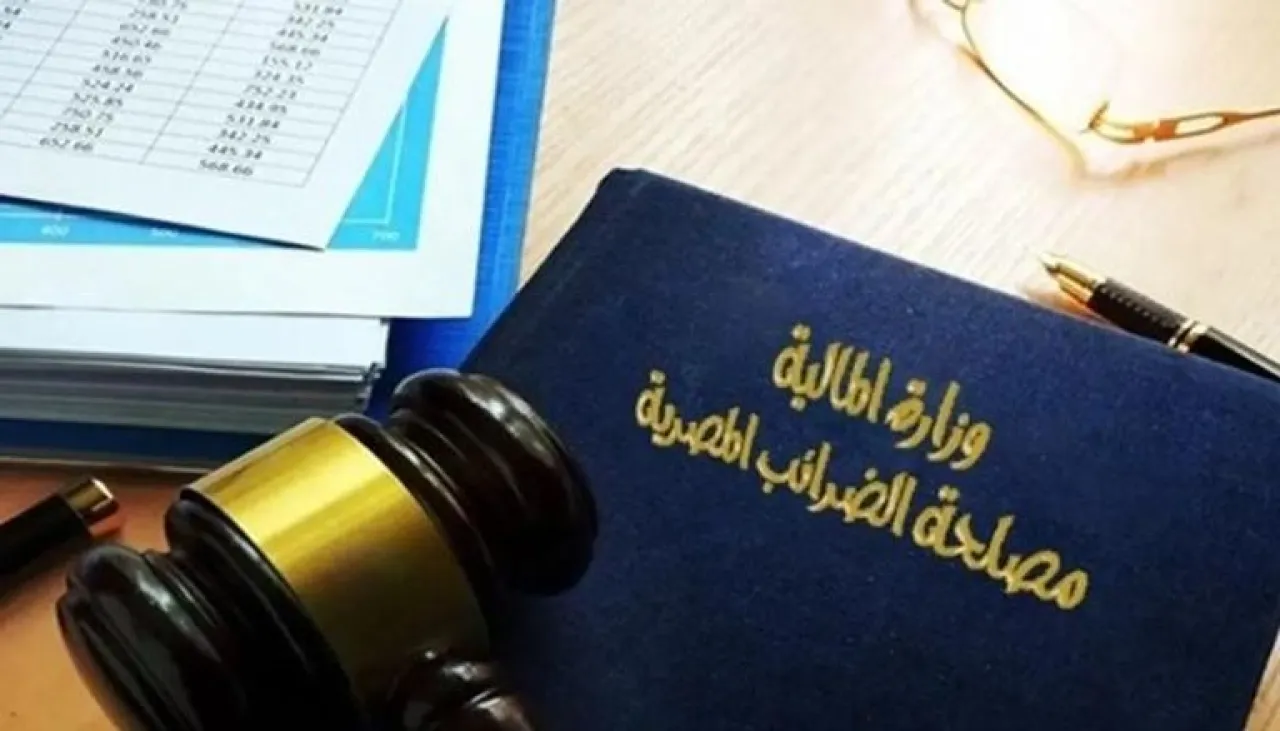 258.51
652.66
450.46
516.65
458.56
524.24
525.85
750.75
258.51
652.66
342.25
445.34
568.66
155.12
324.35
752.23
434.85
531.84
342.25
445.34
568.66
700
وزارة المالية
مصلحة الضرائب المصرية